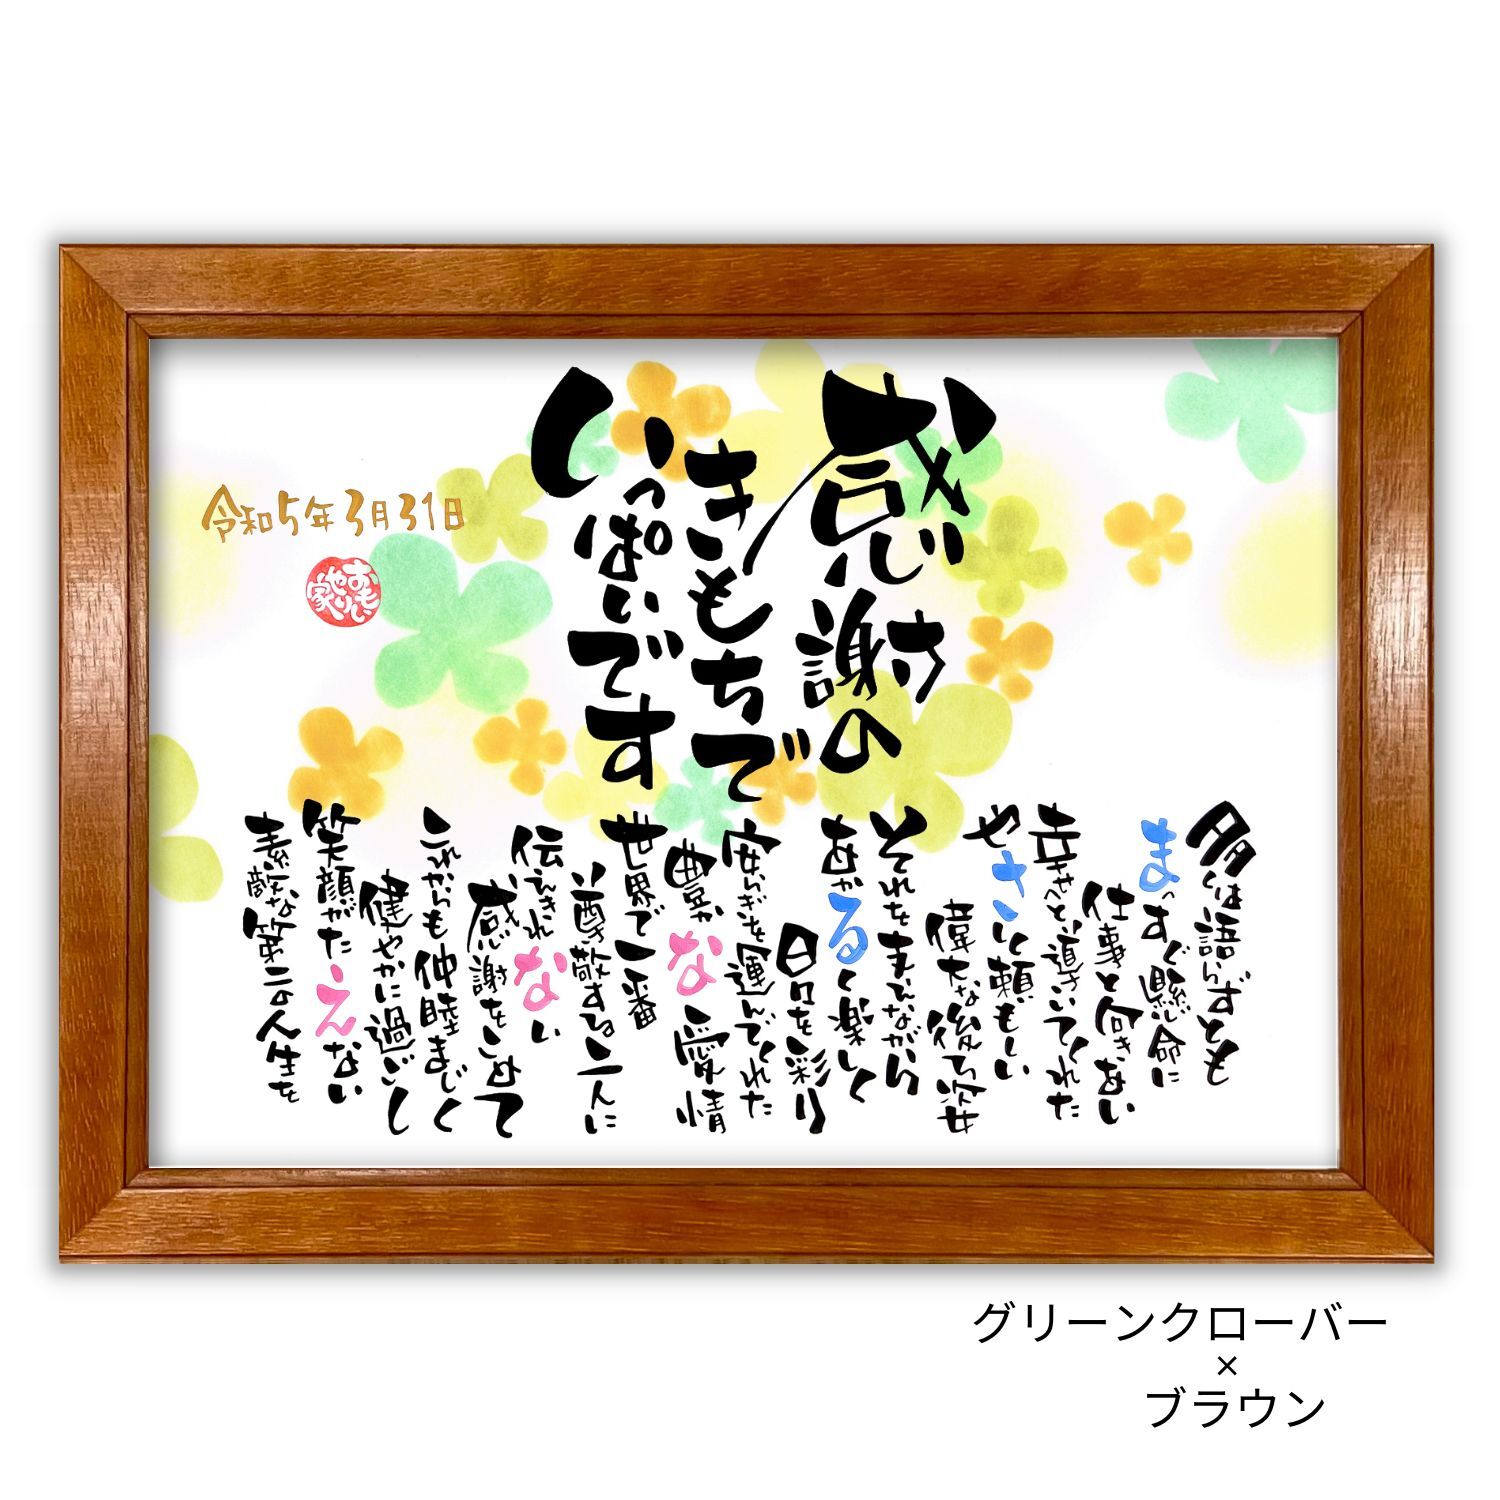 感謝の
きもちで
いっぱいです
多くは語らずとも
まっすぐ懸命に
仕事と向きあい
幸せへと導いてくれた
やさしく頼もしい
偉大な後ろ姿
それをまといながら
あかるく楽しく
日々を彩り
安らぎを運んでくれた
豊かな愛情
世界で一番
尊敬する二人に
伝えきれない
感謝をこめて
これからも仲睦まじく
健やかに過ごし
笑顔がたえない
素敵な第二の人生を
令和5年3月31日
おもい
やり
家
グリーンクローバー
×
ブラウン